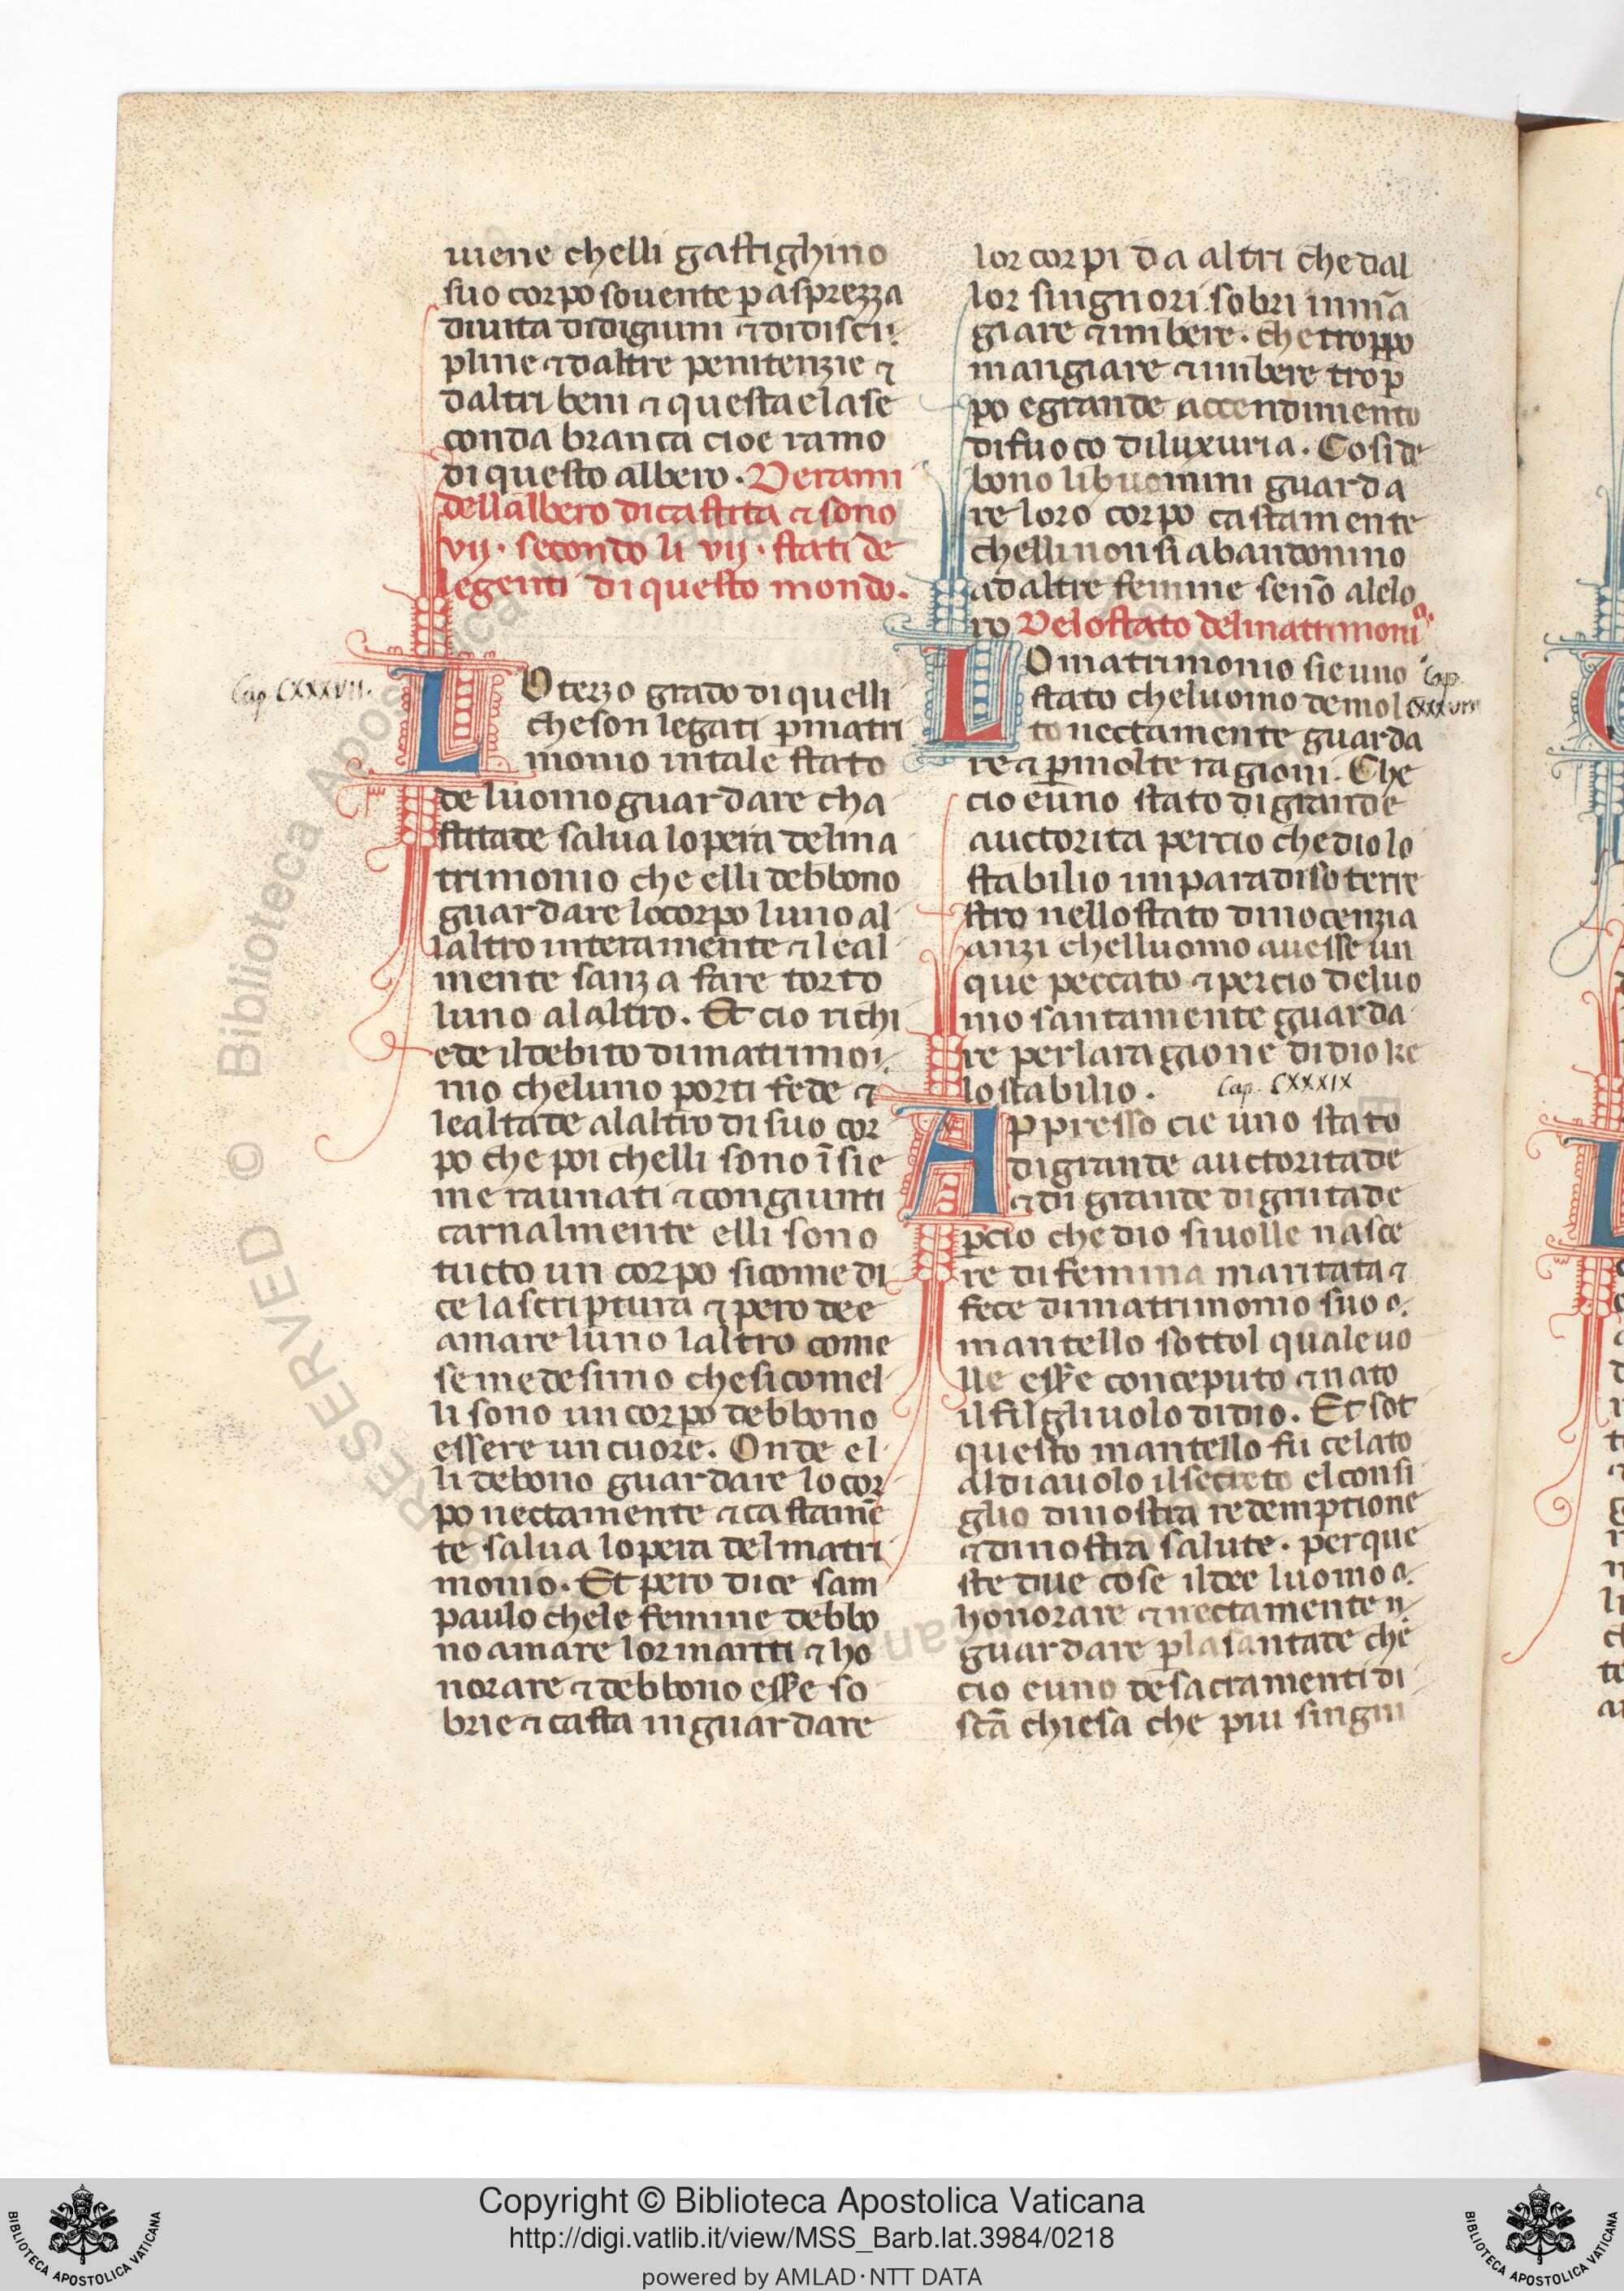 uiene chelli gastighino
suo corpo souente p asprezza
diuita didigiuni ⁊ didisci
pline ⁊ daltre penitenzie ⁊
daltri beni ⁊ questa e la se
conda branca cioe ramo
di questo albero. De rami
dellalbero di castita ⁊ sono
vij. secondo li vij. stati de
legenti di questo mondo.
Cap. CXXXVII.
LO terzo grado di quelli
che son legati p matri
monio in tale stato
de luomo guardare cha
stitate salua lopera delma
trimonio che elli debbono
guardare locorpo luno al
laltro interamente ⁊ leal
mente sanza fare torto
luno alaltro. Et cio richi
ede il debito di matrimoi
nio che luno porti fede ⁊
lealtade alaltro di suo cor
po che poi chelli sono ĩsie
me raunati ⁊ congiunti
carnalmente elli sono
tucto un corpo sicome di
ce la scriptura ⁊ pero dee
amare luno laltro come
se medesimo che sicomel
li sono un corpo debbono
essere un cuore. Onde el
li debono guardare lo cor
po nectamente ⁊ castamẽ
te salua lopera del matri
monio. Et pero dice sam
paulo che le femine debbo
no amare lor mariti ⁊ ho
norare ⁊ debbono esse so
brie ⁊ casta in guardare
lor corpi da altri che dal
lor singnori. sobri in mã
giare ⁊ in bere. che troppo
mangiare ⁊ in bere trop
po e grande accendimento
di fuoco di luxuria. Cosi de
bono li huomini guarda
re loro corpo castamente
chelli non si abandonino
ad altre femine senõ ale lo
ro Delo stato del matrimonio.
LO matrimonio sie uno
Cap. CXXXVIII
stato che luomo de mol
to nectamente guarda
re ⁊ p molte ragioni. Che
cio e uno stato di grande
auctorita percio che dio lo
stabilio im paradiso terre
stro nello stato dinocenzia
anzi chelluomo auesse un
que peccato ⁊ percio de luo
mo santamente guarda
re per la ragione di dio ke
lo stabilio.
Cap. CXXXIX
Appresso cie uno stato
di grande auctoritade
⁊ di grande dignitade
pcio che dio si uolle nasce
re di femina maritata ⁊
fece di matrimonio suo
mantello sottol quale uo
lle esse conceputo ⁊ nato
il filgliuolo di dio. Et sot
questo mantello fu celato
al diauolo il secreto el consi
glio di nostra redemptione
⁊ di nostra salute. per que
ste due cose il dee luomo
honorare ⁊ nectamente
guardare p la santate che
cio e uno de sacramenti di
scã chiesa che piu singni
Copyright © Biblioteca Apostolica Vaticana
http://digi.vatlib.it/view/MSS_Barb.lat.3984/0218
powered by AMLAD·NTT DATA
BIBLIOTECA APOSTOLICA VATICANA
BIBLIOTECA APOSTOLICA VATICANA